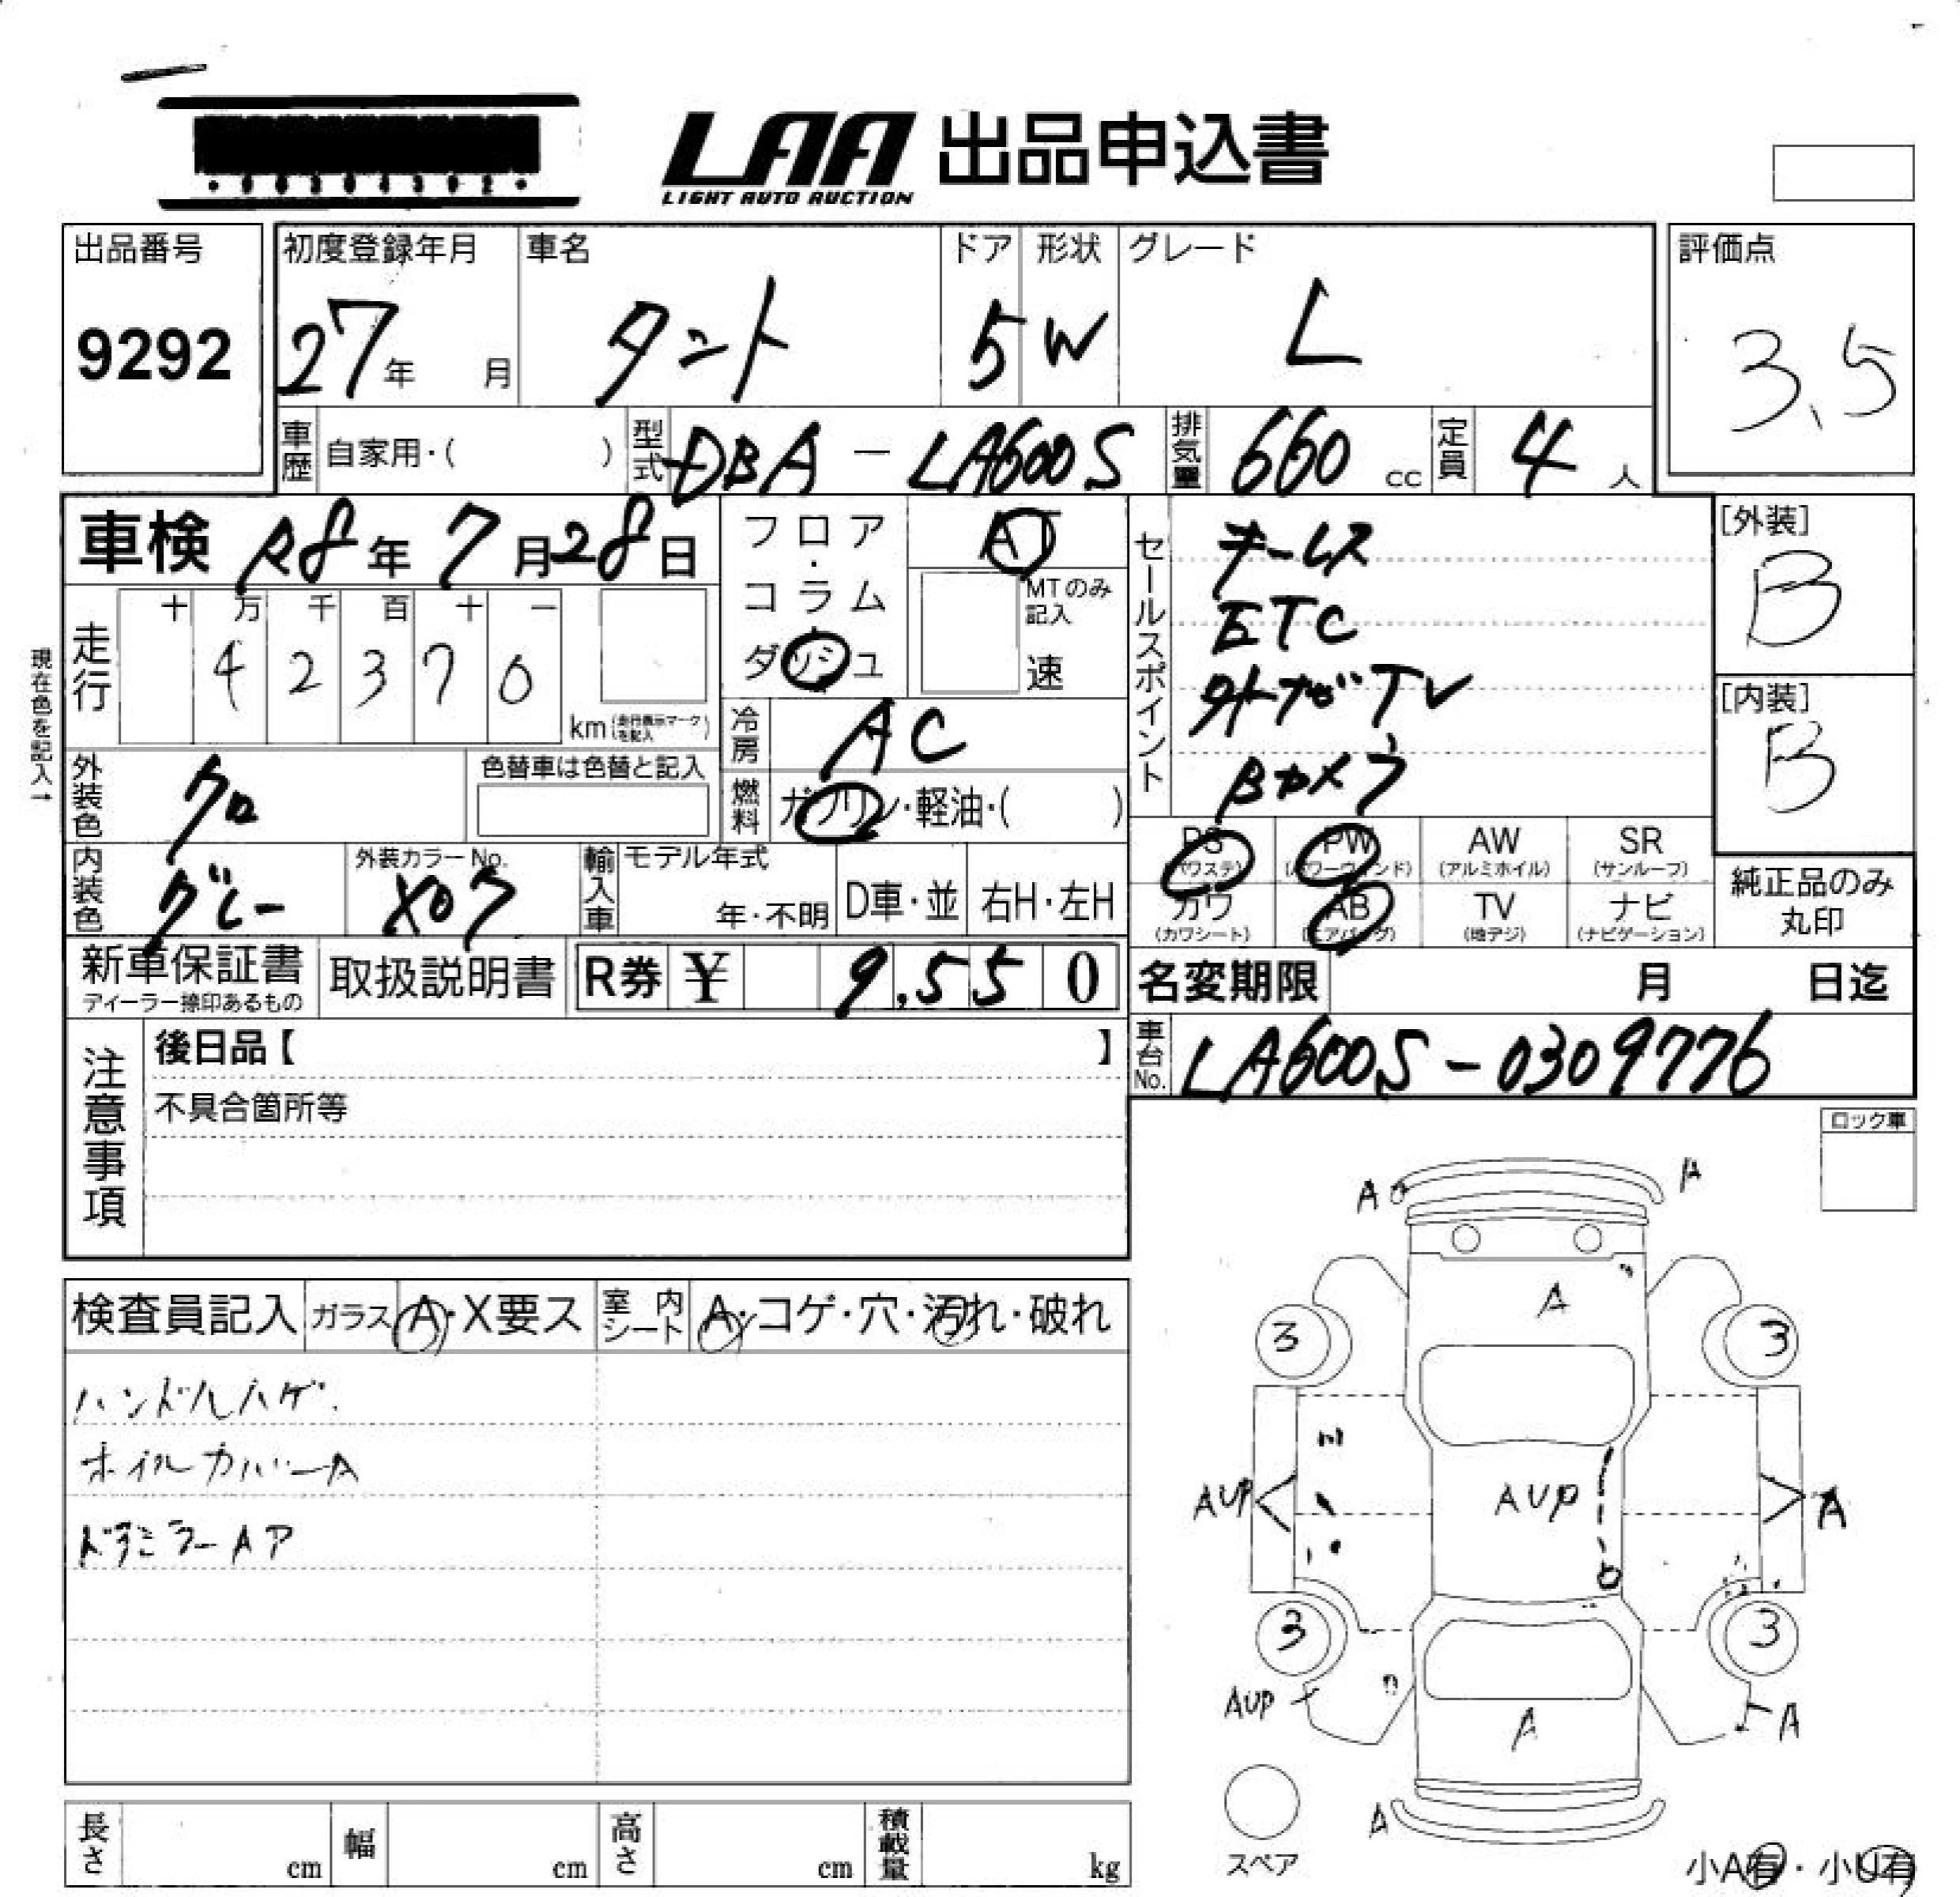 LAA 出品申込書
LIGHT AUTO AUCTION
出品番号
9292
初度登録年月
27年 月
車名
タント
ドア
5
形状
W
グレード
L
評価点
3.5
車歴 自家用・( )
型式 DBA-LA600S
排気量 660 cc
定員 4 人
車検 R8年 7月28日
フロア・コラム・ダッシュ
AT
MTのみ記入
速
セールスポイント
キーレス
ETC
外ナビTV
Bカメラ
[外装]
B
[内装]
B
走行
十 万 千 百 十 一
4 2 3 7 0
km(走行表示マークを記入)
現在色を記入→
冷房 AC
外装色 クロ
色替車は色替と記入
燃料 ガソリン・軽油・( )
内装色 グレー
外装カラーNo.
X07
輸入車
モデル年式
年・不明
D車・並
右H・左H
PS
(パワステ)
PW
(パワーウインド)
AW
(アルミホイル)
SR
(サンルーフ)
カワ
(カワシート)
AB
(エアバッグ)
TV
(地デジ)
ナビ
(ナビゲーション)
純正品のみ
丸印
新車保証書
ディーラー捺印あるもの
取扱説明書
R券 ¥ 9,550
名変期限 月 日迄
車台No. LA600S-0309776
注意事項
後日品【 】
不具合箇所等
ロック車
検査員記入
ガラス A・X要ス
室内シート A・コゲ・穴・汚れ・破れ
ハンドルハゲ.
ホイルカバーA
ドアミラーAア
A A
A
3 3
AUP AUP A
3 3
AUP A A
A
スペア
小A有・小U有
長さ cm
幅 cm
高さ cm
積載量 kg